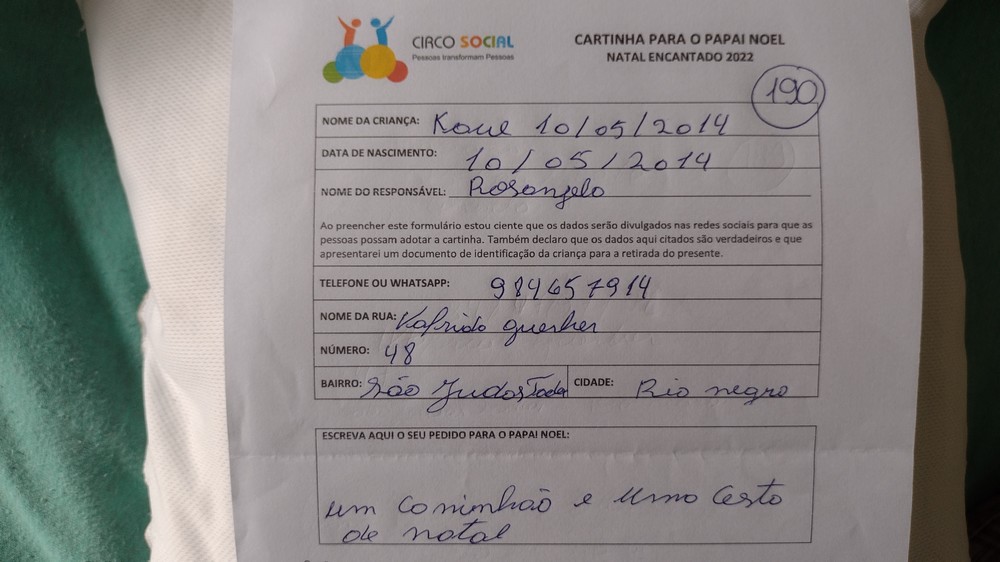 CIRCO SOCIAL
Pessoas transformam Pessoas
CARTINHA PARA O PAPAI NOEL
NATAL ENCANTADO 2022
190
NOME DA CRIANÇA: Kaue 10/05/2014
DATA DE NASCIMENTO: 10/05/2014
NOME DO RESPONSÁVEL: Rosangela
Ao preencher este formulário estou ciente que os dados serão divulgados nas redes sociais para que as
pessoas possam adotar a cartinha. Também declaro que os dados aqui citados são verdadeiros e que
apresentarei um documento de identificação da criança para a retirada do presente.
TELEFONE OU WHATSAPP: 984657914
NOME DA RUA:
NÚMERO: 48
BAIRRO: São Judas Tadeu CIDADE: Rio negro
ESCREVA AQUI O SEU PEDIDO PARA O PAPAI NOEL:
um caminhão e uma cesta
de natal